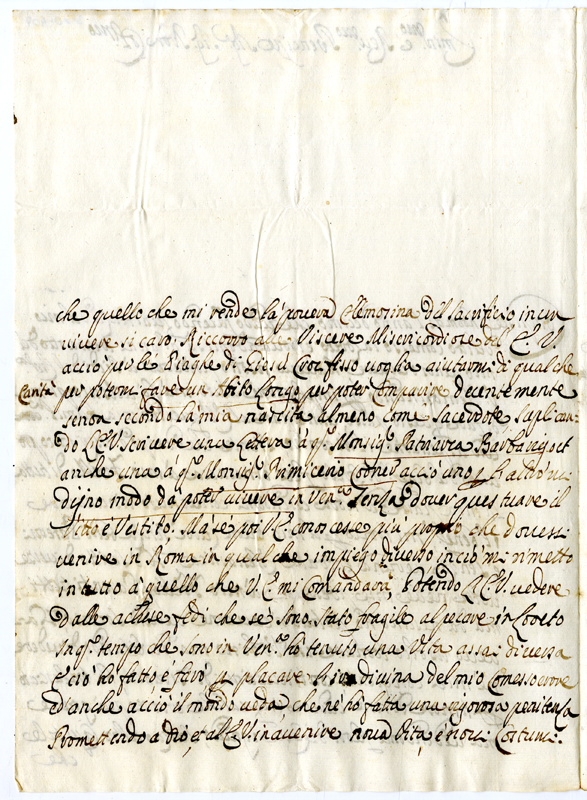 che quello che mi rende la povera Elemosina del sacrificio in un
vivere si caro. Riccorro alle Viscere Misericordiose dell' E. V.
acciò per le Piaghe di Giesù Crocifisso voglia aiutarmi di qualche
Carità per potermi fare un Abito Longo per poter Comparire decentemente
se non secondo la mia nascita almeno come Sacerdote suplican-
do L'E.V. scrivere una Lettera à q. Monsig. Patriarca Barbarigo et
anche una à q. Monsig. Primicerio Corner acciò uno, ò l'altro mi
dijno modo da poter vivere in Ven. senza dover questuare il
Vitto è Vestito. Mà se poi V.E. conoscesse più proprio che dovessi
venire in Roma in qualche impiego diverso in ciò mi rimetto
in tutto à quello che V.E. mi Comandarà, Potendo L'E.V. vedere
dalle acluse fedi che se sono stato fragile al pecare in Loreto
In q. tempo che sono in Ven. hò tenuto una Vita assai diversa
è ciò hò fatto è farò p placare l'ira divina del mio Comesso errore
è d'anche acciò il mondo veda che ne hò fatta una rigorosa penitenza
Promettendo a Dio, et al E.V. in avenire nova Vita è novi Costumi.